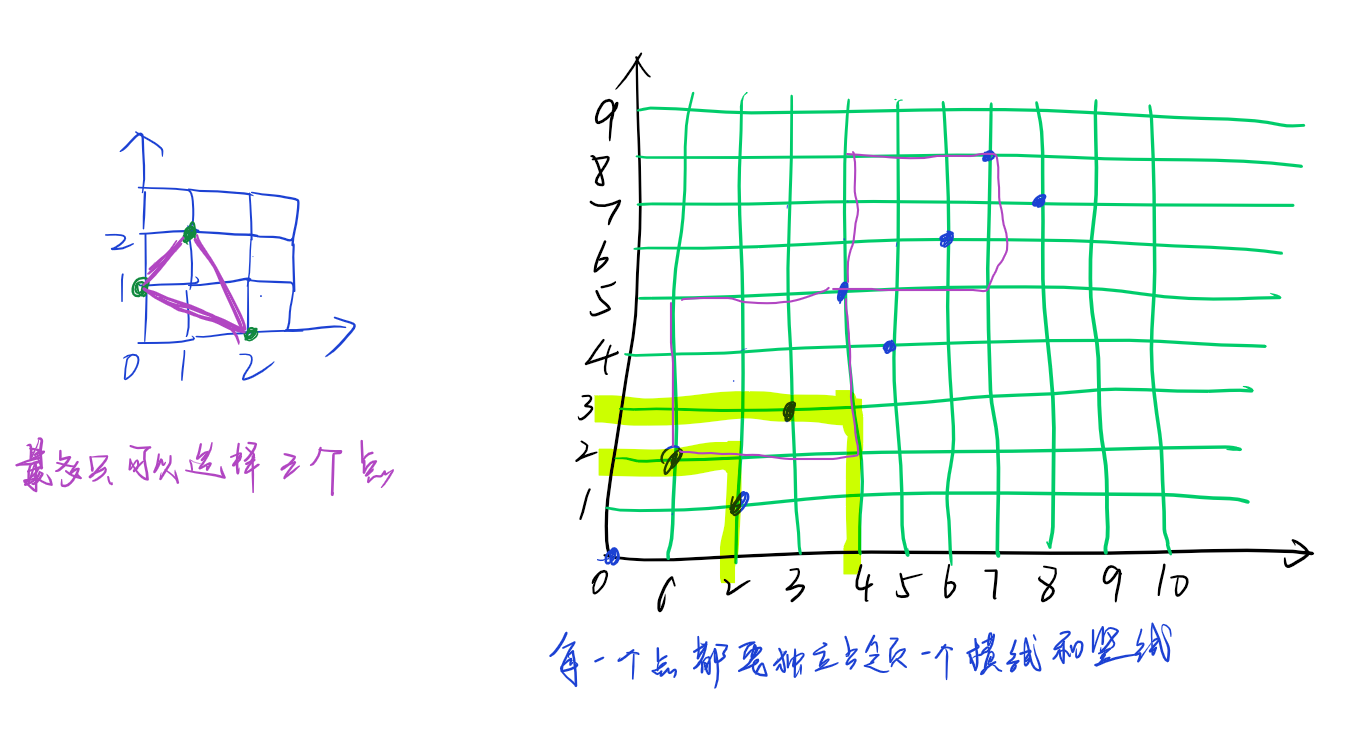 2
1
0 1 2
最多只可以选择三个点
9
8
7
6
5
4
3
2
1
0 1 2 3 4 5 6 7 8 9 10
每一个点都要独立占领一个横线和竖线